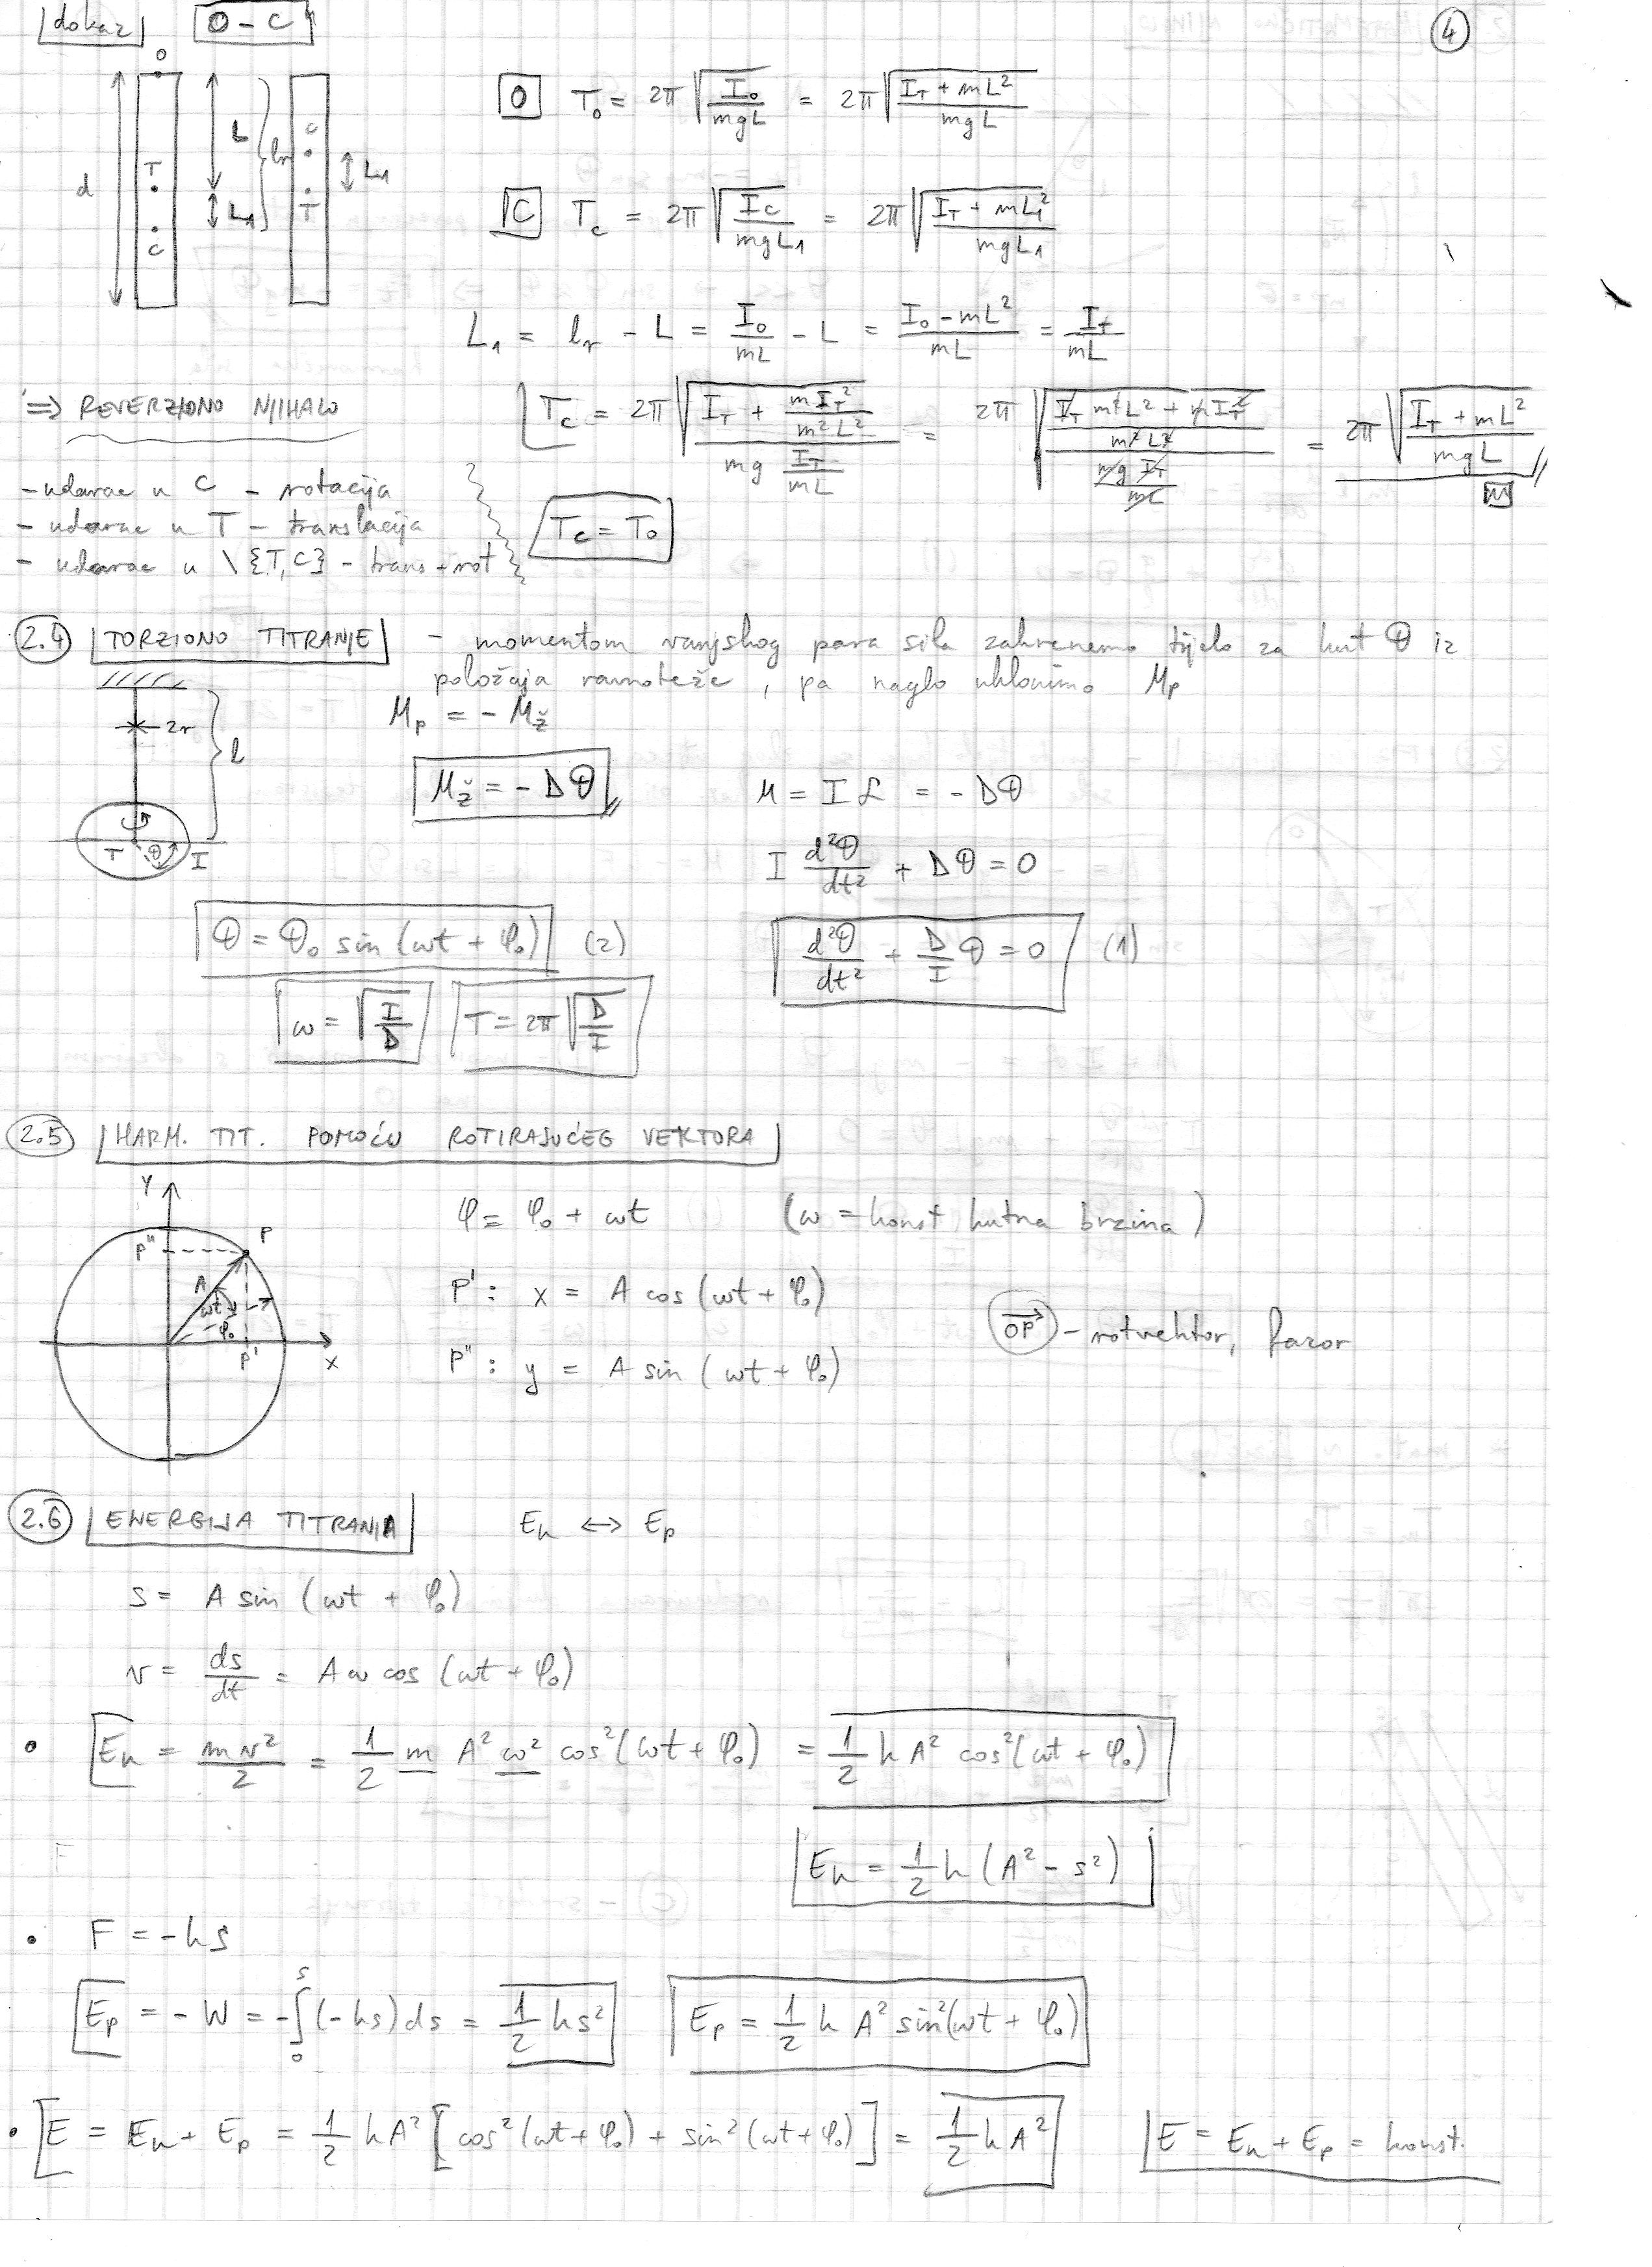 dokaz O - C
4
O
d
T
C
L
L₁
lr
C
T
L₁
O T₀ = 2π √(I₀/mgL) = 2π √((I_T + mL²)/mgL)
C T_c = 2π √(I_c/mgL₁) = 2π √((I_T + mL₁²)/mgL₁)
L₁ = l_r - L = I₀/mL - L = (I₀ - mL²)/mL = I_T/mL
⇒ REVERZIONO NJIHALO
T_c = 2π √((I_T + mI_T²/m²L²)/(mg I_T/mL)) = 2π √(((I_T m²L² + mI_T²)/m²L²)/(mg I_T/mL)) = 2π √((I_T + mL²)/mgL)
- udarac u C - rotacija
- udarac u T - translacija
- udarac u \{T,C} - trans + rot
T_c = T₀
2.4 TORZIONO TITRANJE - momentom vanjskog para sila zakrenemo tijelo za kut Θ iz
položaja ravnoteže, pa naglo uklonimo M_p
2r
l
T Θ I
M_p = - M_ž
M_ž = - DΘ
M = I α = - DΘ
I d²Θ/dt² + DΘ = 0
Θ = Θ₀ sin (ωt + φ₀) (2)
d²Θ/dt² + D/I Θ = 0 (1)
ω = √(I/D) T = 2π √(D/I)
2.5 HARM. TIT. POMOĆU ROTIRAJUĆEG VEKTORA
Y
P"
P
A
ωt
φ₀
P'
X
φ = φ₀ + ωt (ω = konst, kutna brzina)
P' : x = A cos (ωt + φ₀)
OP⃗ - rotvektor, fazor
P" : y = A sin (ωt + φ₀)
2.6 ENERGIJA TITRANJA E_k ↔ E_p
s = A sin (ωt + φ₀)
v = ds/dt = Aω cos (ωt + φ₀)
• E_k = mv²/2 = 1/2 m A² ω² cos² (ωt + φ₀) = 1/2 k A² cos² (ωt + φ₀)
E_k = 1/2 k (A² - s²)
F
• F = -ks
E_p = - W = -∫₀ˢ (-ks) ds = 1/2 ks² E_p = 1/2 k A² sin² (ωt + φ₀)
• E = E_k + E_p = 1/2 kA² [cos² (ωt + φ₀) + sin² (ωt + φ₀)] = 1/2 kA² E = E_k + E_p = konst.